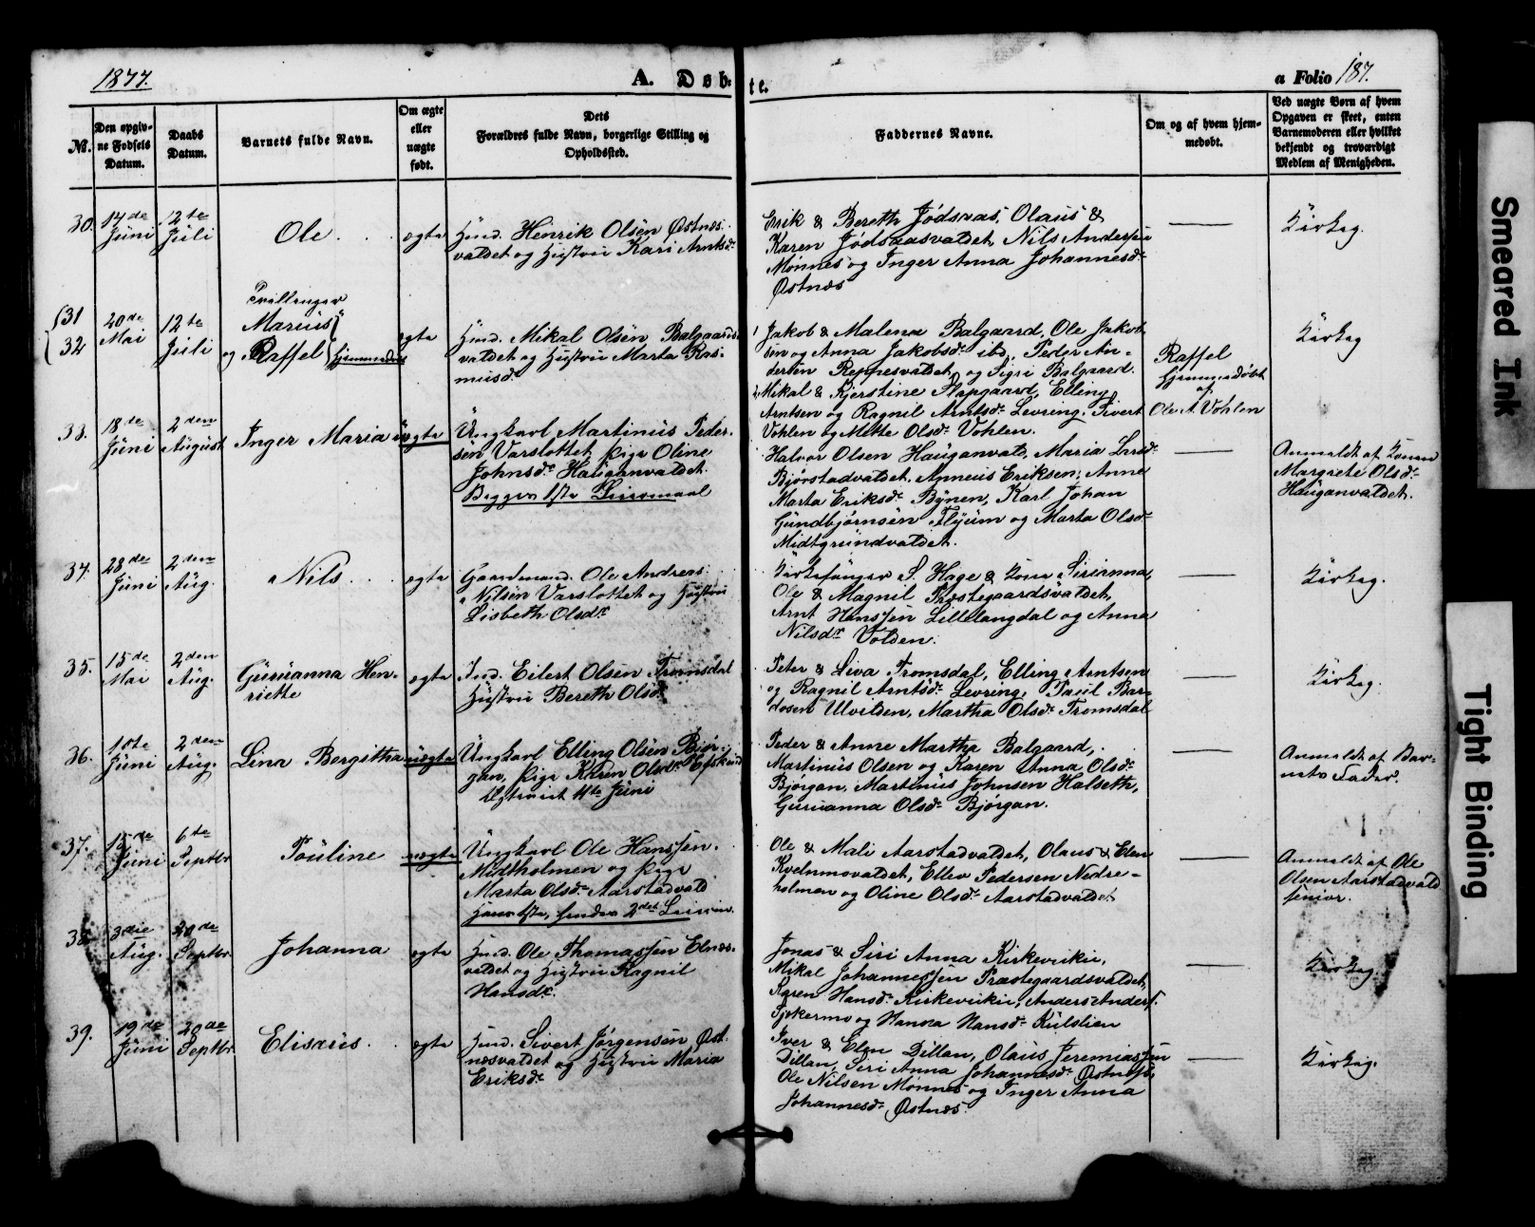 1877.
A. Døbte.
a Folio 187.
№.
Den opgivne Fødsels Datum.
Daabs Datum.
Barnets fulde Navn.
Om ægte eller uægte født.
Dets Forældres fulde Navn, borgerlige Stilling og Opholdssted.
Faddernes Navne.
Om og af hvem hjemmedøbt.
Ved uægte Børn af hvem Opgaven er skeet, enten Barnemoderen eller hvilket bekjendt og troværdigt Medlem af Menigheden.
30.
14de Juni
12te Juli
Ole
ægte
Huusm. Henrik Olsen Østnæs-
valdet og Hustru Kari Arntsdr
Erik & Bereth Jødsaas, Olaus &
Karen Jødsaasvaldet, Nils Andersen
Mønnes og Inger Anna Johannesdr
Østnæs
Kirkeg.
31
32
20de Mai
12te Juli
Tvillinger
Marius
og Raffel
ægte
Huusm. Mikal Olsen Balgaards-
valdet og Hustru Marta Ras-
musdr
1 Jakob & Malena Balgaard, Ole Jakob-
sen og Anna Jakobsdr ibd, Peder An-
dersen Reppesvaldet, og Sigri Balgaard.
2 Mikal & Kjerstine Slapgaard, Elling
Arntsen og Ragnil Arntsdr Levring, Sivert
Vohlen og Mette Olsdr Vohlen.
Raffel
Hjemmedøbt
af
Ole A. Vohlen
Kirkeg
33.
18de Juni
2den August
Inger Maria
uægte
Ungkarl Martinus Peder-
sen Varslottet, Pige Oline
Johnsdr Hauganvaldet.
Begges 1ste Leiermaal
Halvor Olsen Hauganvald, Maria Larsdr
Bjørstadvaldet, Anneus Eriksen, Anne
Marta Eriksdr Bynen, Karl Johan
Gundbjørnsen Flyum og Marta Olsdr
Midtgrundvaldet.
Anmeldt af Konen
Margrete Olsdr
Hauganvaldet.
34.
28de Juni
2den Aug.
Nils
ægte
Gaardmand. Ole Andreas
Nilsen Varslottet og Hustru
Lisbeth Olsdr
Kirkesanger S. Hage & Kone Sirianna,
Ole & Magnil Præstegaardsvaldet,
Arnt Hanssen Lillelangdal og Anna
Nilsdr Volden.
Kirkeg.
35.
15de Mai
2den Aug.
Guruanna Hen-
riette
ægte
Ind. Eilert Olsen Tromsdal
Hustru Bereth Olsdr
Peter & Liva Tromsdal, Elling Arntsen
og Ragnil Arntsdr Levring, Paul Bar-
dosen Ulvilden, Martha Olsdr Tromsdal
Kirkeg.
36.
10de Juni
2den Aug.
Lina Bergitha
uægte
Ungkarl Elling Olsen Bjør-
gan, Pige Karen Olsdr
11te Juni
Peder & Anne Martha Balgaard,
Martinus Olsen og Karen Anna Olsdr
Bjørgan, Martinus Johnsen Halseth,
Guruanna Olsdr Bjørgan.
Anmeldt af Bar-
nets Fader.
37.
15de Juni
6te Septbr
Pauline
uægte
Ungkarl Ole Hanssen
Midtholmen og Pige
Marta Olsdr Aarstadvald
Hans 1ste, hendes 2det Leierm.
Ole & Mali Aarstadvaldet, Olaus & Elen
Kvelnmovaldet, Ellev Pedersen Nedre-
holmen og Oline Olsdr Aarstadvaldet
Anmeldt af Ole
Olsen Aarstadvald
senior.
38.
3die Aug.
20de Septbr
Johanna
ægte
Huusm. Ole Thomassen Elnæs-
valdet og Hustru Ragnil
Hansdr.
Jonas & Siri Anna Kirkevikie,
Mikal Johannessen Præstegaardsvaldet,
Karen Hansdr Kirkevikie, Anders Anders.
Sjøkermo og Hanna Hansdr Kulslien
Kirkeg.
39.
19de Juni
20de Septbr
Elisæus
ægte
Huusm. Sivert Jørgensen Øst-
næsvaldet og Hustru Maria
Eriksdr
Iver & Elen Dillan, Olaus Jeremiassen
Dillan, Siri Anna Johannesdr Østnæs,
Ole Nilsen Mønnes og Inger Anna
Johannesdr Østnæs.
Kirkeg.
Smeared Ink
Tight Binding